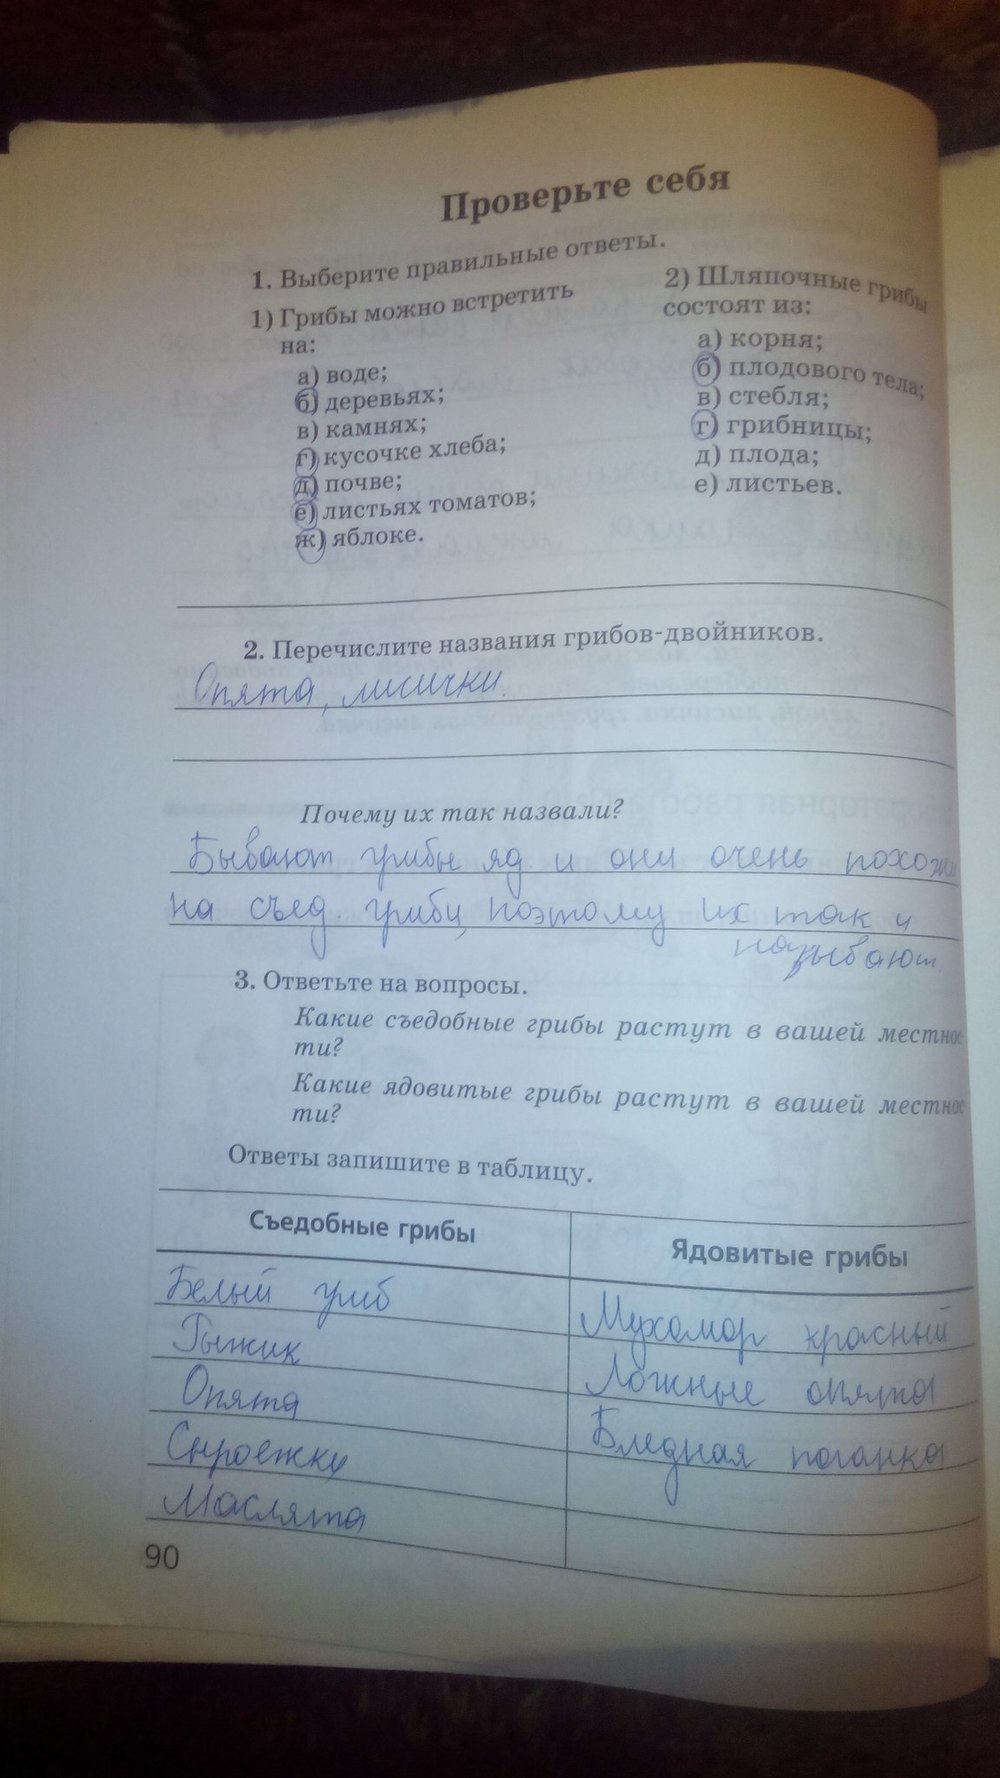 Проверьте себя
1. Выберите правильные ответы.
1) Грибы можно встретить
на:
а) воде;
б) деревьях;
в) камнях;
г) кусочке хлеба;
д) почве;
е) листьях томатов;
ж) яблоке.
2) Шляпочные грибы
состоят из:
а) корня;
б) плодового тела;
в) стебля;
г) грибницы;
д) плода;
е) листьев.
2. Перечислите названия грибов-двойников.
Опята, лисички.
Почему их так назвали?
Бывают грибы яд и они очень похожи
на съед. грибы, поэтому их так и
называют.
3. Ответьте на вопросы.
Какие съедобные грибы растут в вашей местнос
ти?
Какие ядовитые грибы растут в вашей местнос
ти?
Ответы запишите в таблицу.
Съедобные грибы
Ядовитые грибы
Белый гриб
Мухомор красный
Рыжик
Ложные опята
Опята
Бледная поганка
Сыроежки
Маслята
90